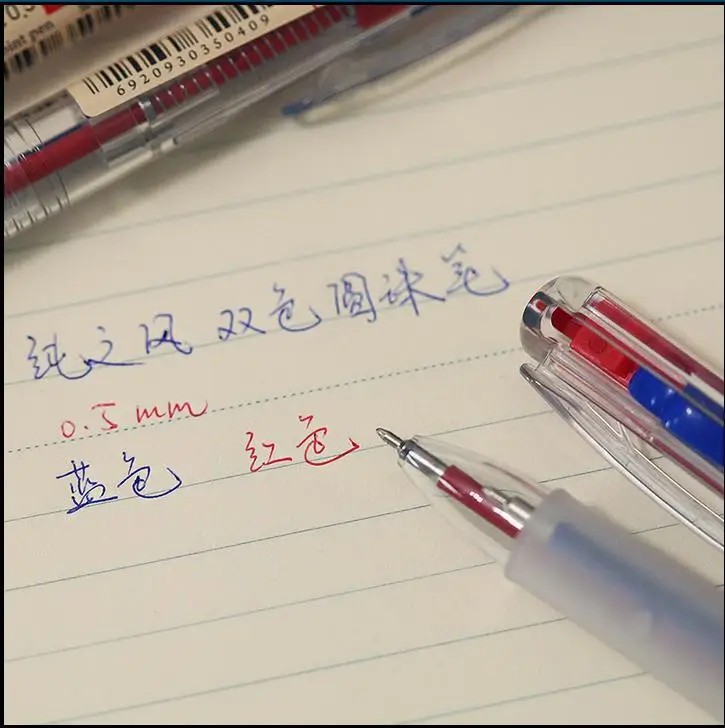 0.5
oint pen
6920930350409
纯文风 双色圆珠笔
0.5mm
蓝色 红色